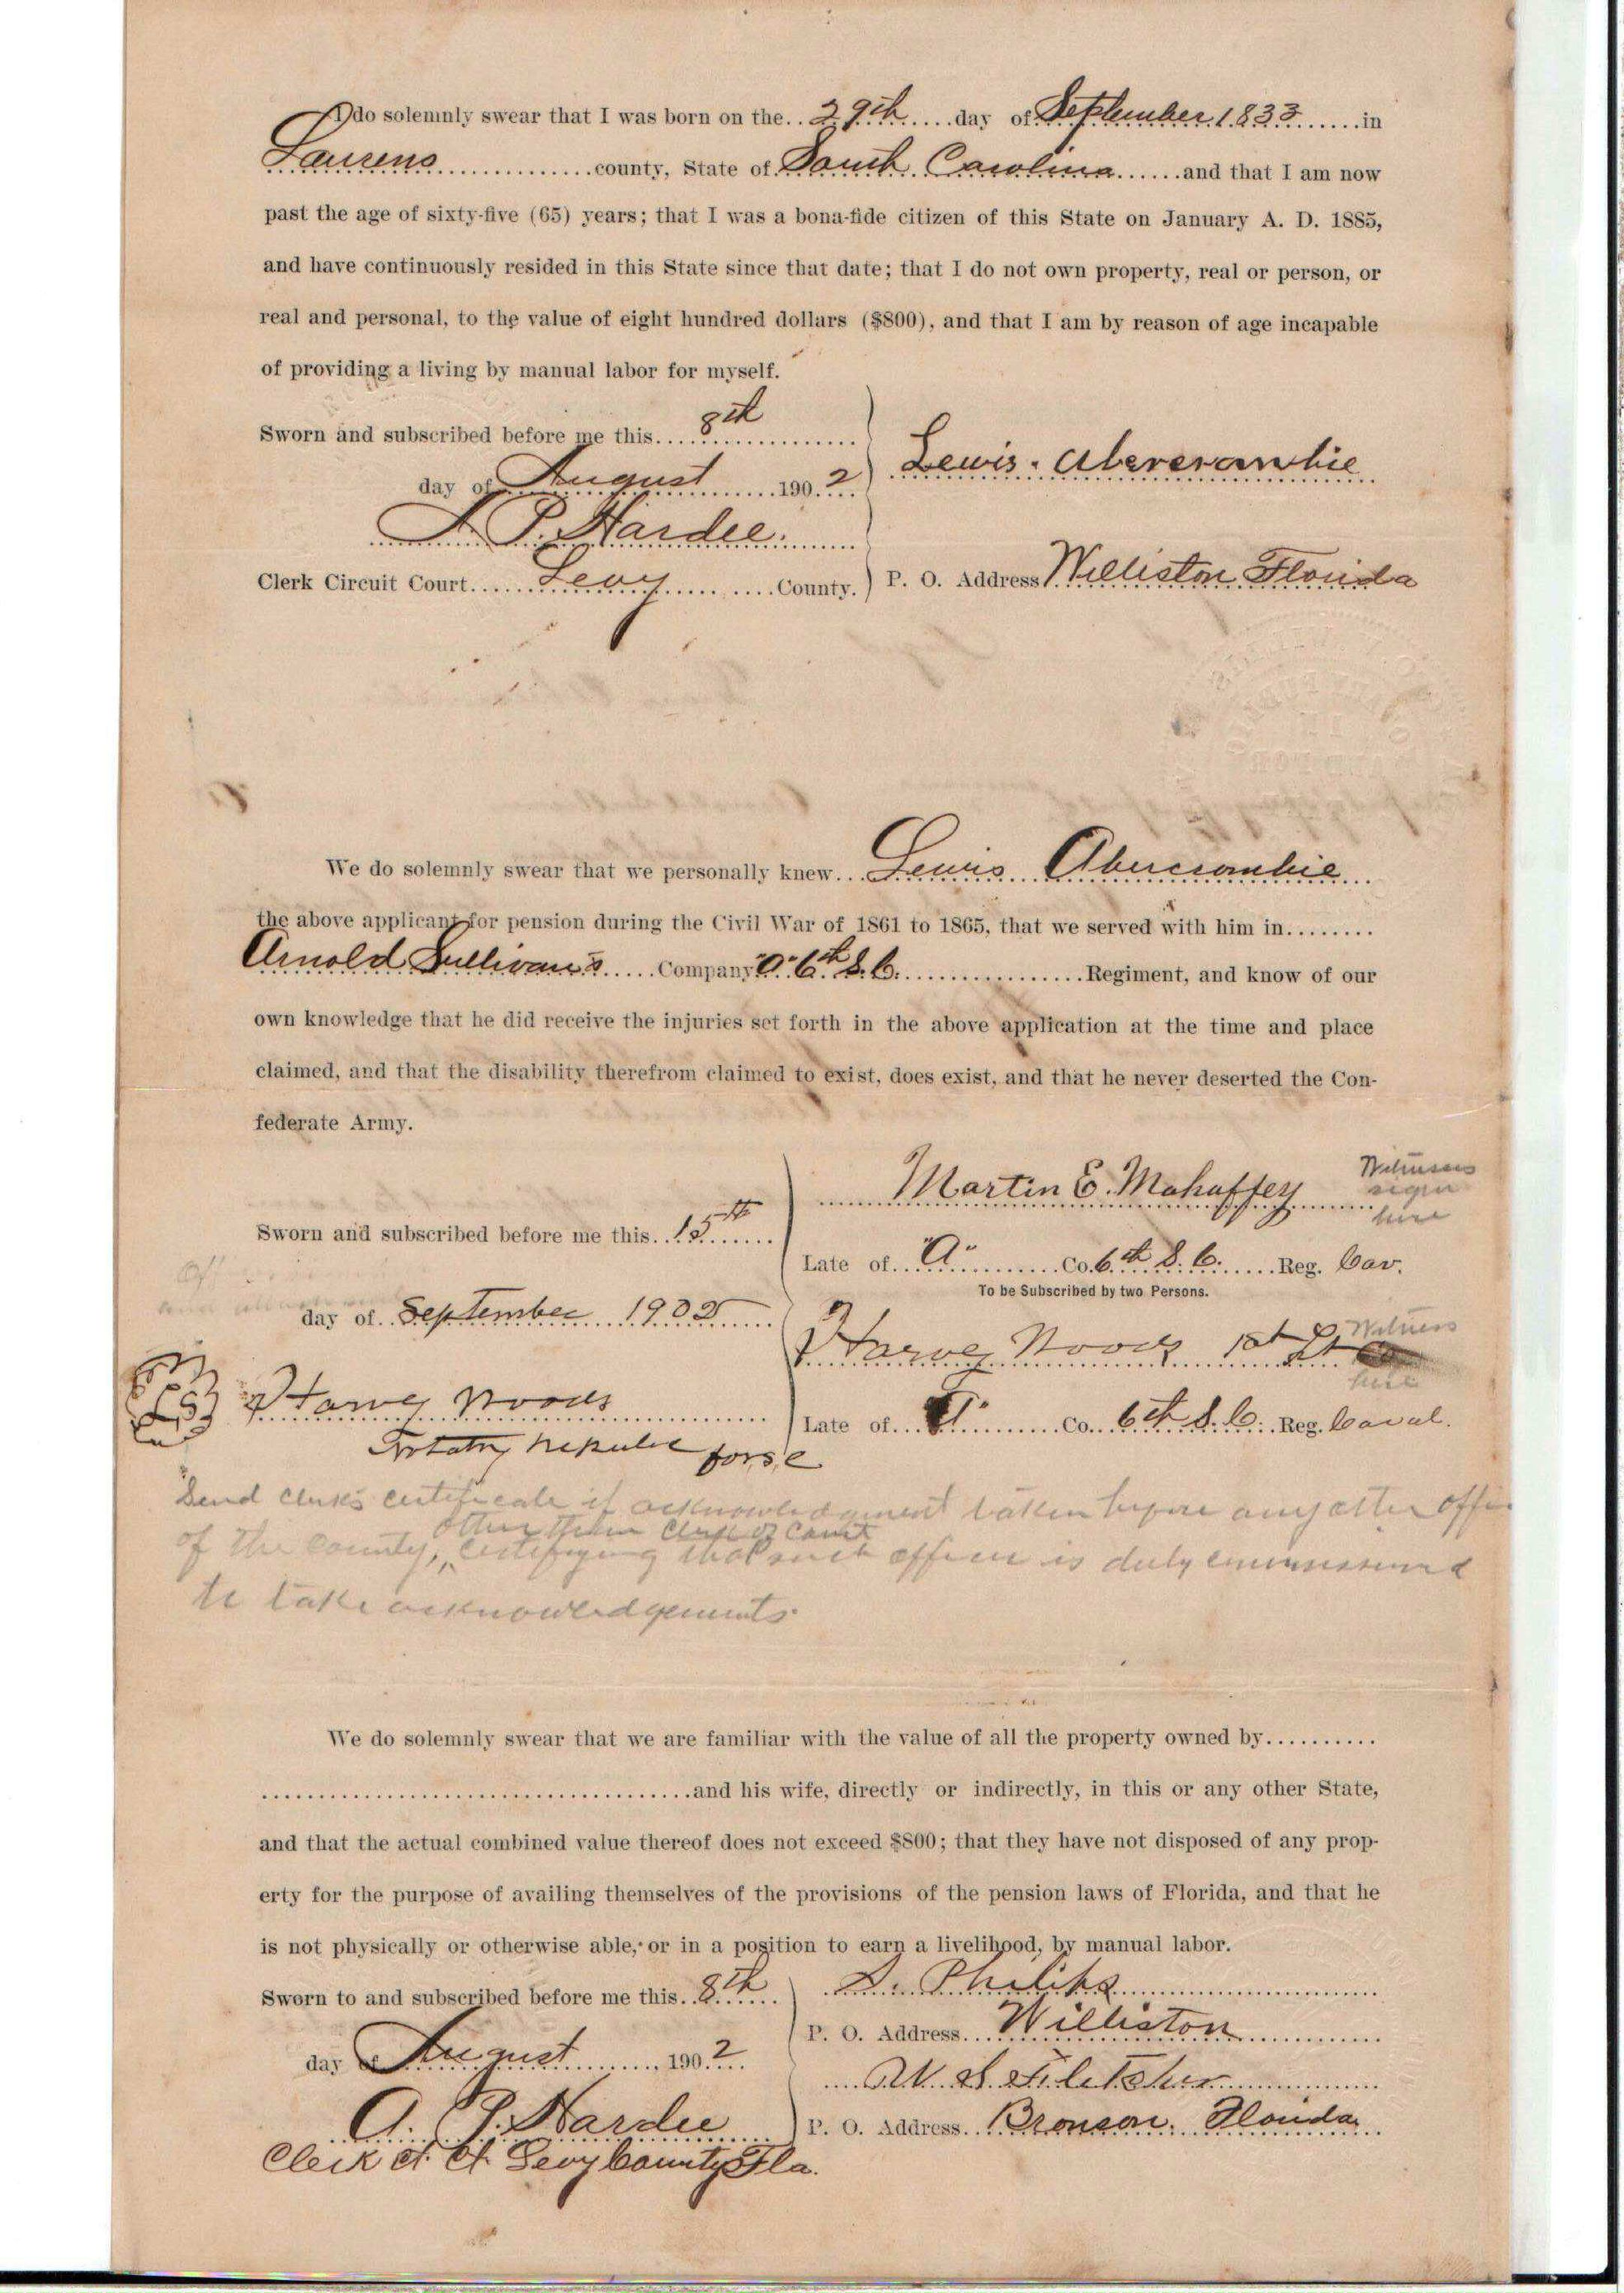 I do solemnly swear that I was born on the..29th....day of September 1833......in
Laurens..............county, State of South Carolina......and that I am now
past the age of sixty-five (65) years; that I was a bona-fide citizen of this State on January A. D. 1885,
and have continuously resided in this State since that date; that I do not own property, real or person, or
real and personal, to the value of eight hundred dollars ($800), and that I am by reason of age incapable
of providing a living by manual labor for myself.
Sworn and subscribed before me this....8th
day of August........190.2
Lewis Abercrombie
P. Hardee.
Clerk Circuit Court......Levy........County.
P. O. Address Williston Florida
We do solemnly swear that we personally knew...Lewis Abercrombie...
the above applicant for pension during the Civil War of 1861 to 1865, that we served with him in........
Arnold Sullivan's.....Company "A" 6th S. C...............Regiment, and know of our
own knowledge that he did receive the injuries set forth in the above application at the time and place
claimed, and that the disability therefrom claimed to exist, does exist, and that he never deserted the Con-
federate Army.
Martin E. Mahaffey
Witnesses
sign
here
Sworn and subscribed before me this..15th
Late of..."A"..........Co. 6th S. C......Reg. Cav.
To be Subscribed by two Persons.
day of..September 1902
Harvey Woods 1st Lt
Witness
here
L S
Harvey Woods
Late of..............Co...6th S. C...Reg. Caval.
Notary Republic for S C
Send clerk's certificate if acknowledgment taken before any other
other than Clerk of Court
of the county, certifying that such officer is duly commissioned
to take acknowledgements.
We do solemnly swear that we are familiar with the value of all the property owned by..........
......................................and his wife, directly or indirectly, in this or any other State,
and that the actual combined value thereof does not exceed $800; that they have not disposed of any prop-
erty for the purpose of availing themselves of the provisions of the pension laws of Florida, and that he
is not physically or otherwise able, or in a position to earn a livelihood, by manual labor.
Sworn to and subscribed before me this..8th
S. Philips
P. O. Address...Williston
day of August........, 190.2
W. S. Fletcher
A. P. Hardee
P. O. Address..Bronson. Florida
Clerk Ct. Ct. Levy County Fla.